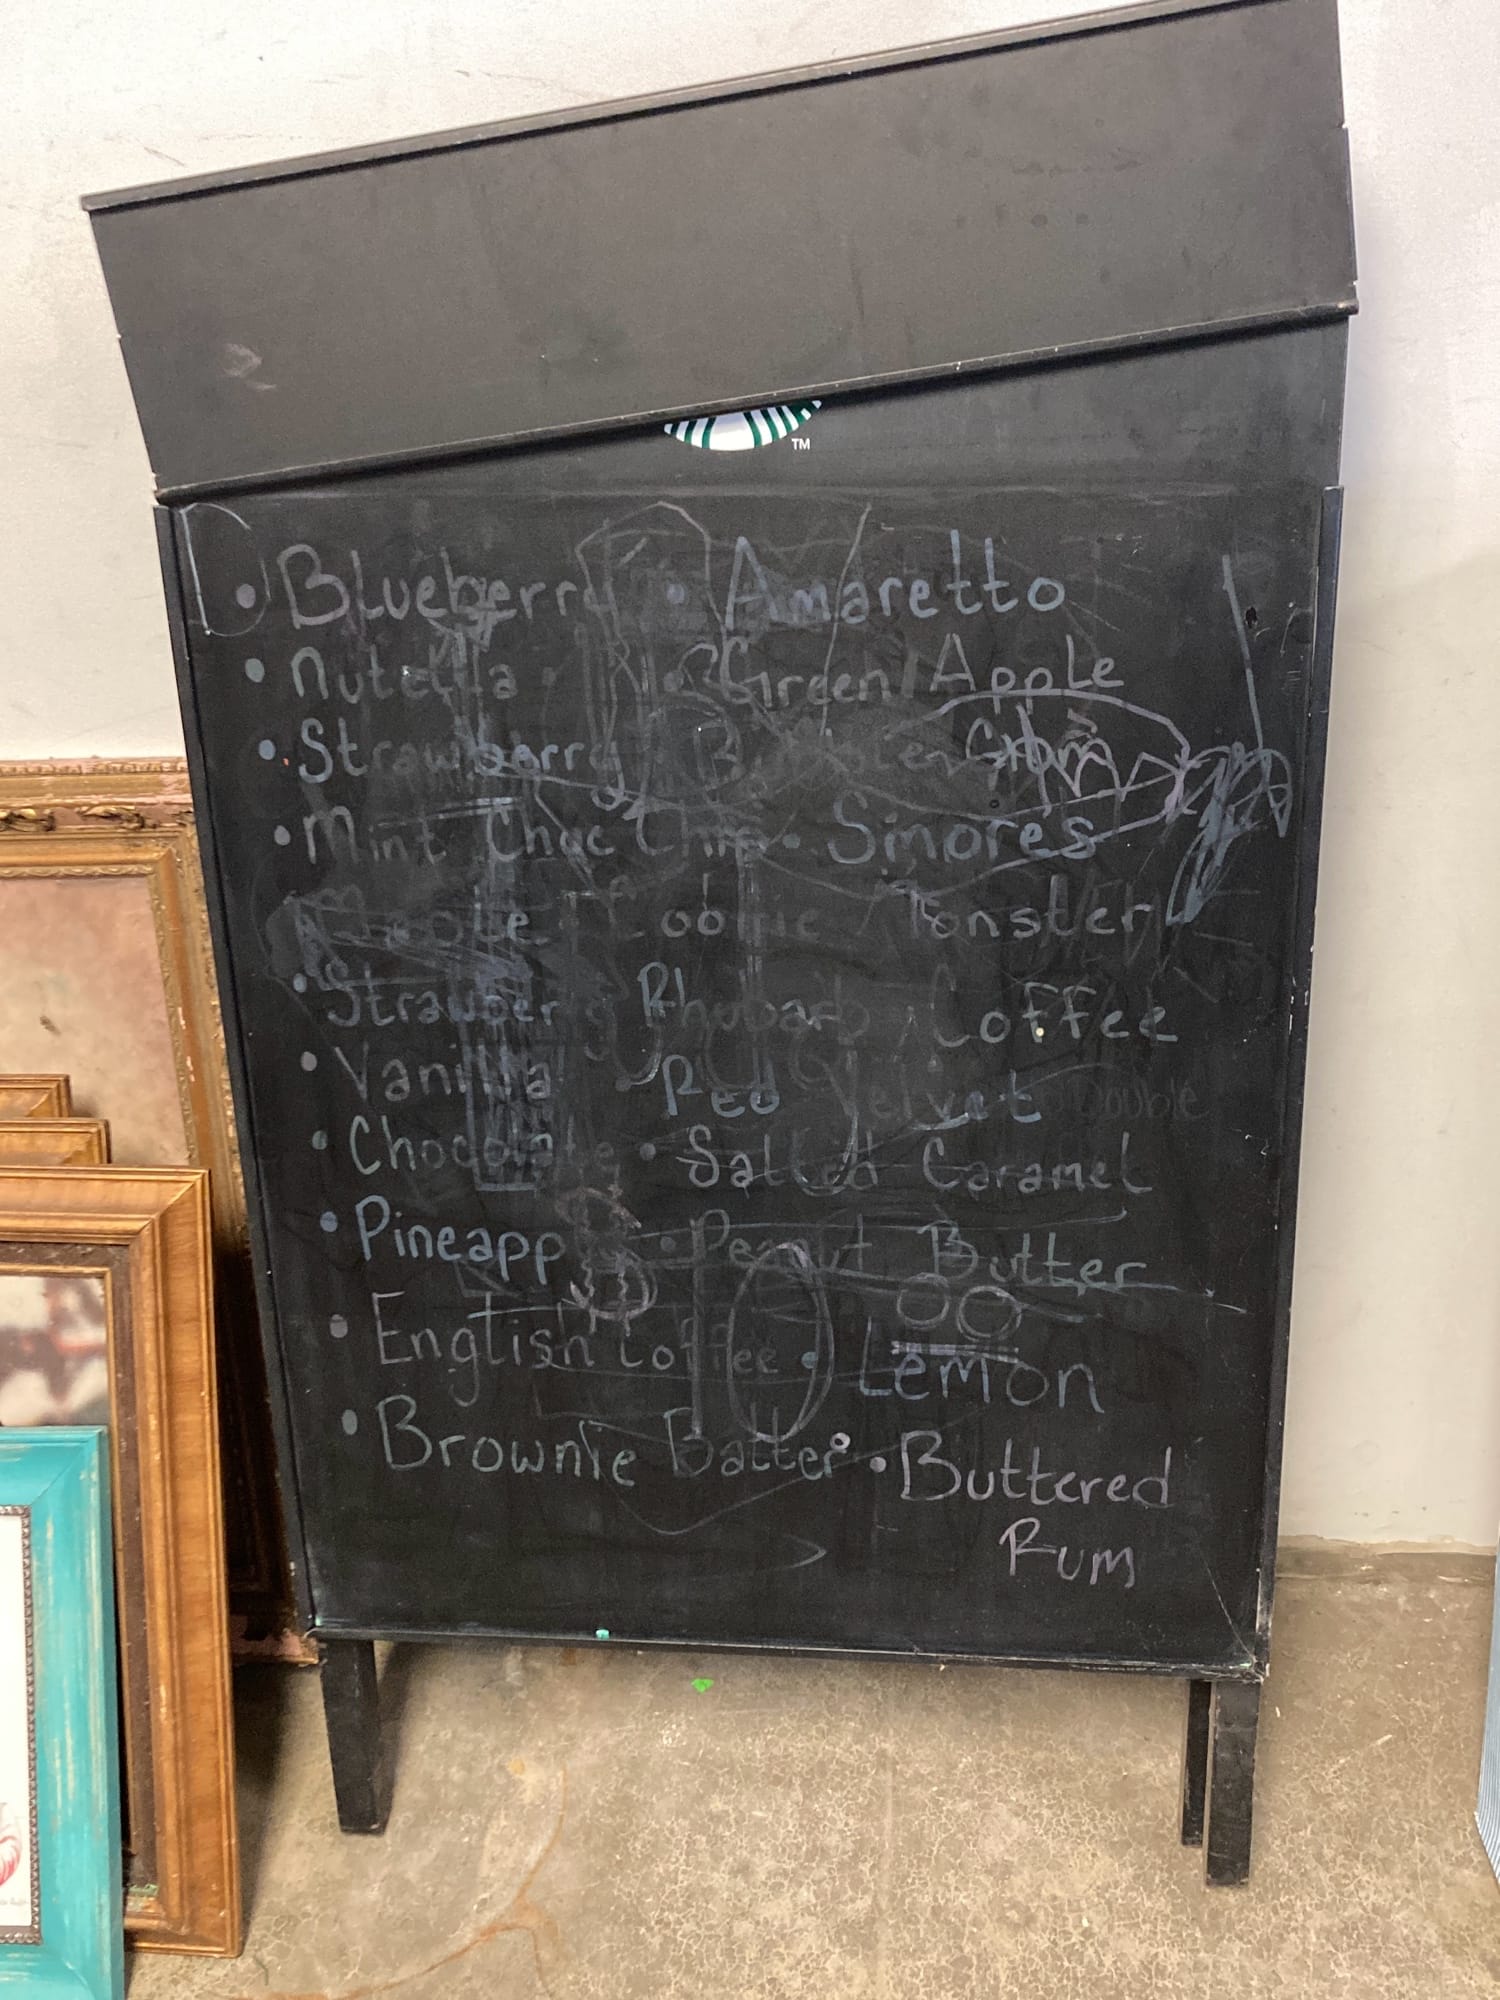 TM
• Blueberry • Amaretto
• Nutella • Green Apple
• Strawberry
• Mint Choc Chip • Smores
Cookie Monster
• Strawberry Rhubarb Coffee
• Vanilla Red Velvet Double
• Chocolate • Salted Caramel
• Pineapp • Peanut Butter
• English Coffee • Lemon
• Brownie Batter • Buttered
Rum